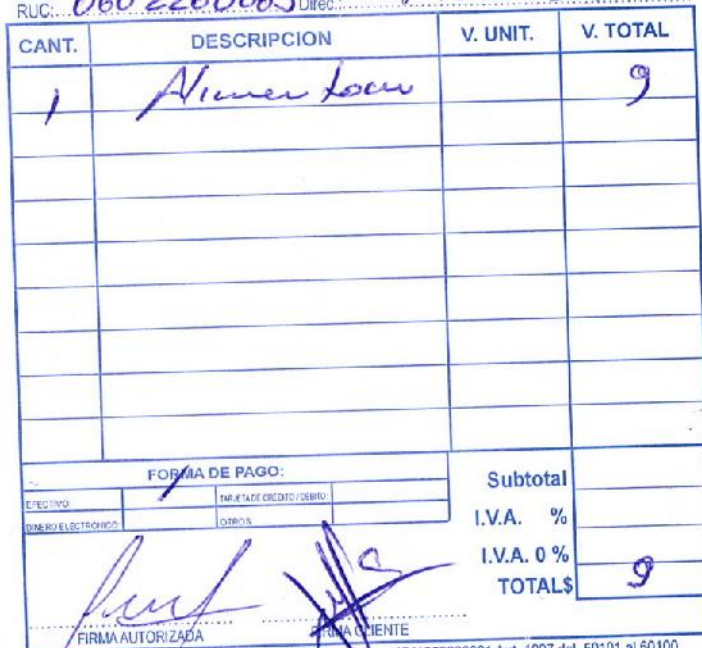 RUC: 0602260065 Direc.:
CANT. DESCRIPCION V. UNIT. V. TOTAL
1 Alimentacion 9
FORMA DE PAGO:
EFECTIVO: / TARJETA DE CRÉDITO / DÉBITO:
DINERO ELECTRONICO: OTROS
Subtotal
I.V.A. %
I.V.A. 0 %
TOTAL$ 9
FIRMA AUTORIZADA FIRMA CLIENTE
Aut. 1097 del 59101 al 60100